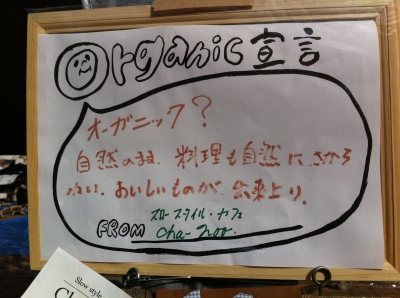 Organic 宣言
オーガニック?
自然のまま、料理も自然にさから
わない、おいしいものが出来上り。
FROM スロースタイル・カフェ
cha-noo.
Slow style